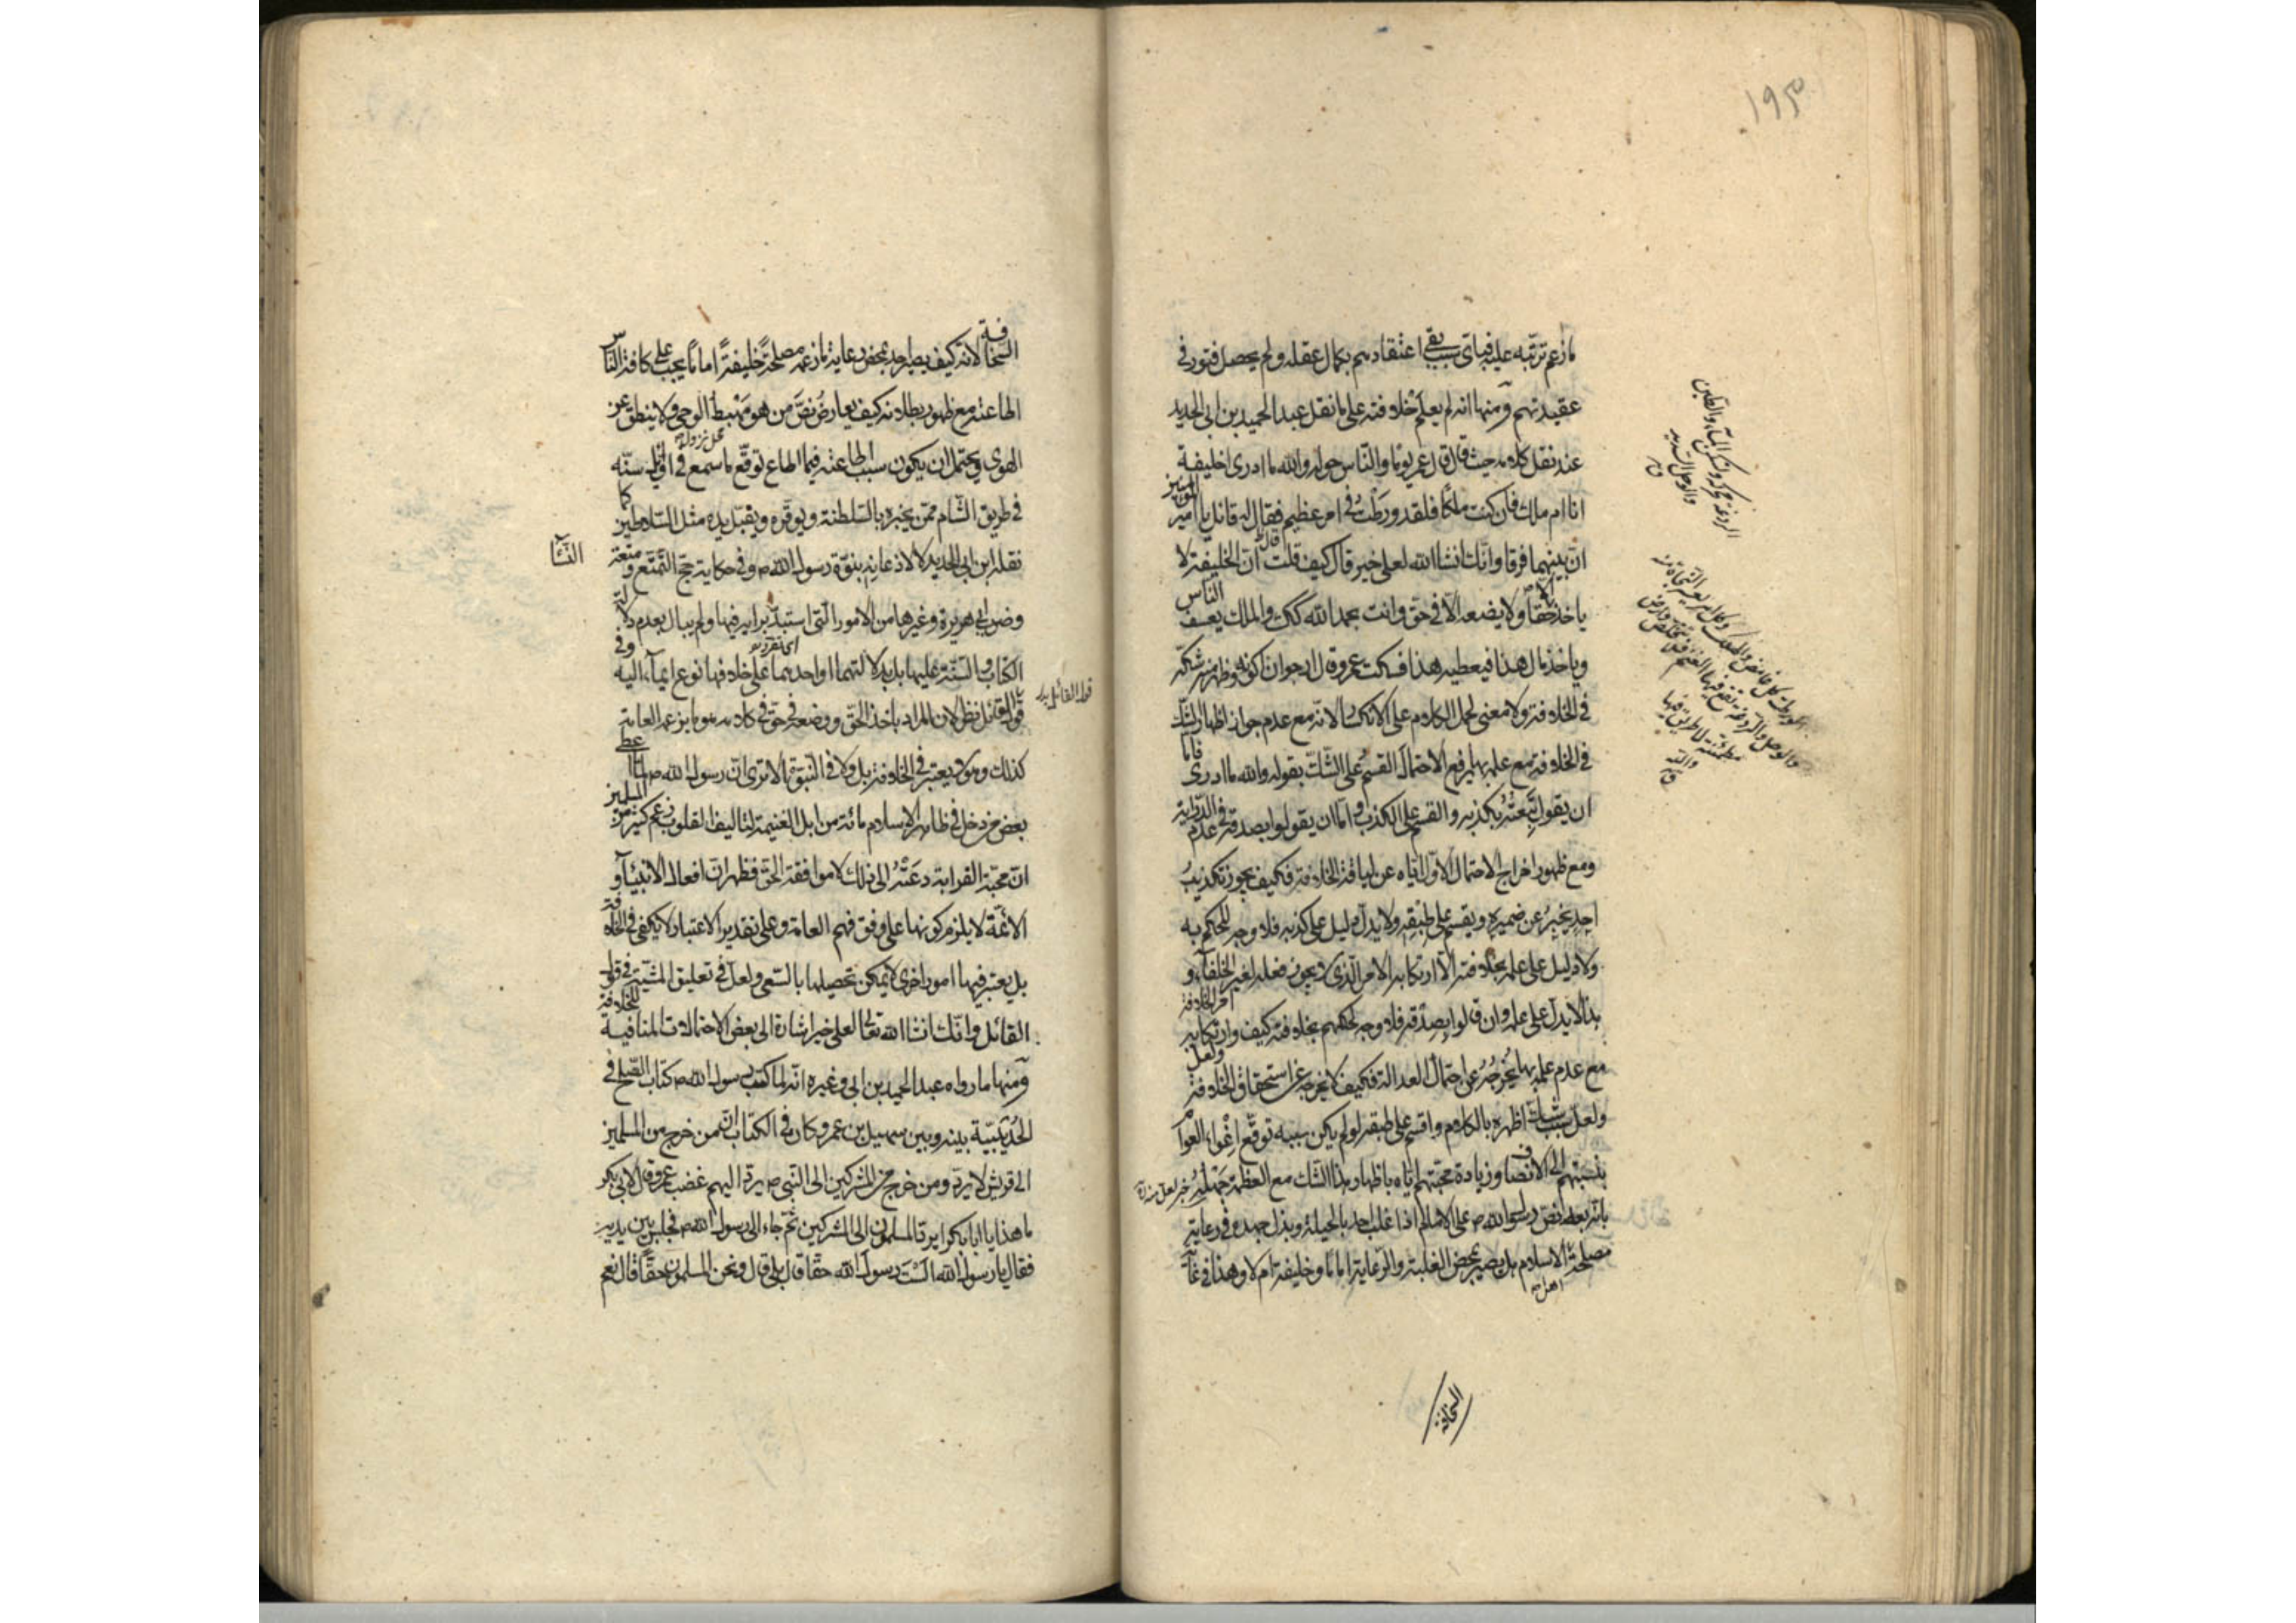 ١٩٣
ما زعم ترتبه عليه فباي سبب بقي اعتقادهم بكمال عقله ولم يحصل فتور في
عقيدتهم ومنها انه لم يعلم خلافته على ما نقل عبد الحميد بن ابي الحديد
عند نقل كلامه حيث قال قال عمر يوما والناس حوله والله ما ادرى اخليفة
انا ام ملك فان كنت ملكا فلقد ورطت في امر عظيم فقال له قائل يا امير المؤمنين
ان بينهما فرقا وانك انشا الله لعلى خير قال كيف قلت قال ان الخليفة لا
ياخذ الا حقا ولا يضعه الا في حق وانت بحمد الله كك والملك يعسف الناس
وياخذ مال هذا فيعطيه هذا فسكت عمر وقال ارجوان اكونه وظهر من شكه
في الخلافة ولا معنى لحمل الكلام على الانكسار لانه مع عدم جواز اظهار الشك
في الخلافة مع علمه بها يرفع الاحتمال القسم على الشك بقوله والله ما ادرى فاما
ان يقول تبعته بكذبه والقسم على الكذب واما ان يقولوا بصدقه في عدم الدراية
ومع ظهور اخراج الاحتمال الاول اياه عن لياقة الخلافة فكيف يجوز تكذيب
احد يخبر عن ضميره ويقسم على طبقه ولا يدل دليل على كذبه فلا وجه للحكم به
ولا دليل على علمه بخلافته الا ارتكابه الامر الذى لا يجوز فعله لغير الخلفاء و
هذا لا يدل على علمه وان قالوا بصدقه فلا وجه لحكمهم بخلافته كيف وارتكابه امر الخلافة
مع عدم علمه بها يخرجه عن احتمال العدالة فكيف لا يخرجه عن استحقاق الخلافة ولعل
ولعل سبب شك اظهره بالكلام واقسم على طبقه لو لم يكن سببه توقع اغواء العوام
بنسبتهم الى الانصاف وزيادة محبتهم اياه باظهار هذا الشك مع العظمة جهله
بانه بعد نص رسول الله ص على الامام اذا غلب احد بالحيلة وبذل جهده في رعاية
مصلحة الاسلام هل يصير بمحض الغلبة والرعاية اماما وخليفة ام لا وهذا في غاية
السخافة
السخافة لانه كيف يصير احد بمحض رعاية ما زعمه مصلحة خليفة اماما يجب على كافة الناس
اطاعته مع ظهور بطلانه كيف يعارض نص من هو مهبط الوحي ولا ينطق عن
الهوى ويحتمل ان يكون سبب اطاعته فيما اطاع توقع ما سمع في اوائل سنه
في طريق الشام ممن يخبره بالسلطنة ويوقره ويقبل يده مثل السلاطين كما
نقله ابن ابي الحديد لا لاذعانه بنبوة رسول الله ص وفي حكاية حج التمتع ومتعة
النساء
وضرب ابي هريرة وغيرها من الامور التي استبد برايه فيها ولم يبال بعدم دلالة
الكتاب والسنة عليها بل بدلالتهما او احدهما على خلافها نوع ايماء اليه وفي
قول القائل نظر لان المراد باخذ الحق ووضعه في حق في كلامه هو ما يزعمه العامة
كذلك وهو لا يعتبر في الخلافة بل ولا في النبوة الا ترى ان رسول الله ص لما اعطى
بعض من دخل في ظاهر الاسلام مائة من ابل الغنيمة لتاليف القلوب زعم كثير من المسلمين
ان محبة القرابة دعته الى ذلك لا موافقة الحق فظهر ان افعال الانبياء و
الائمة لا يلزم كونها على وفق فهم العامة وعلى تقدير الاعتبار لا يكفى في الخلافة
بل يعتبر فيها امور اخرى لا يمكن تحصيلها بالسعى ولعل في تعليق المشية في قول
القائل وانك انشا الله تعالى لعلى خير اشارة الى بعض الاحتمالات المنافية للخلافة
ومنها ما رواه عبد الحميد بن ابي وغيره انه لما كتب رسول الله ص كتاب الصلح في
الحديبية بينه وبين سهيل بن عمرو كان في الكتاب ان من خرج من المسلمين
الى قريش لا يرد ومن خرج من المشركين الى النبي ص يرد اليهم غضب عمر وقال لابي بكر
ما هذا يا ابا بكر ايرد المسلمون الى المشركين ثم جاء الى رسول الله ص فجلس بين يديه
فقال يا رسول الله الست رسول الله حقا قال بلى قال ونحن المسلمون حقا قال نعم